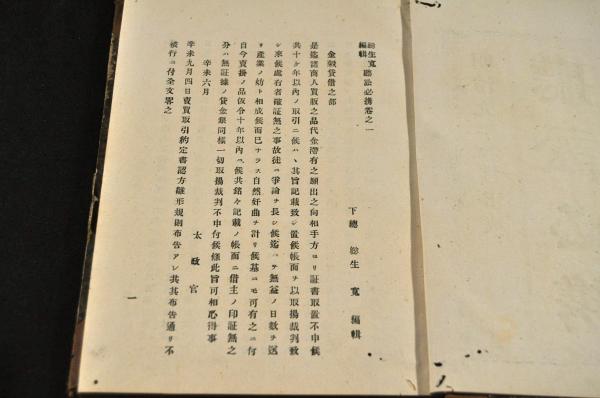 編輯 聽訟必携卷之一
下總 生 寬 編輯
金穀貸借之部
是迄諸商人賣販之品代金滯有之願出之向相手方ヨリ証書取置不申候
共十ヶ年以內ノ取引ニ候ハヽ其旨記載致シ置候帳面ヲ以取揚裁判致
シ來候處右者確証無之事故徒ニ爭論ヲ長シ候迄ハテ無益ノ日數ヲ送
リ產業ノ妨ト相成候而已ナラス自然奸曲ヲ計リ候基ニモ可有之ニ付
自今賣掛ノ品假令十年以內ニ候共銘々記載ノ帳面ニ借主ノ印証無之
分ハ無証據ノ貸金銀同樣一切取揚裁判不申付候條此旨可相心得事
辛未六月
太政官
辛未九月四日賣買取引約定書認方雛形規則布告アレ共其布告通リ不
被行ニ付全文畧之
一